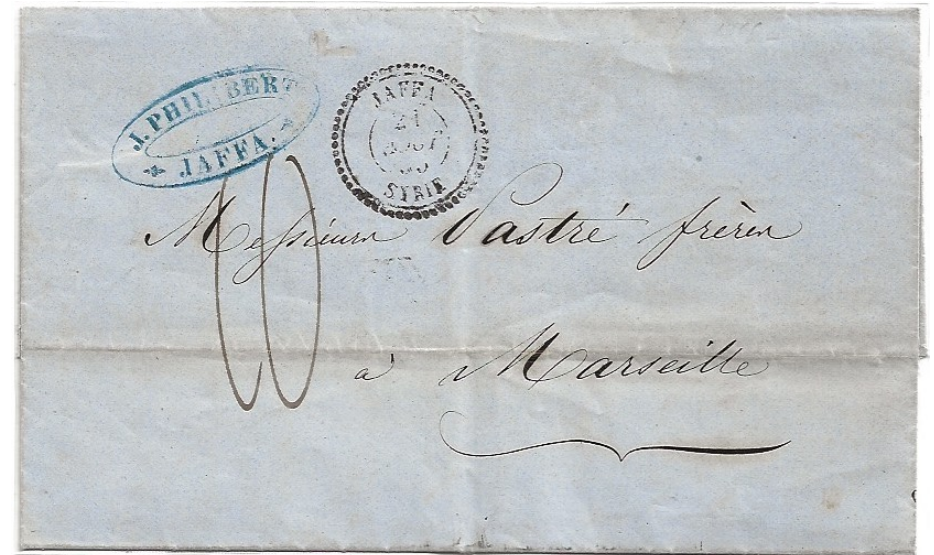 J. PHILIBERT
JAFFA.
JAFFA
21
AOUT
SYRIE
10
Messieurs Pastré frères
à Marseille